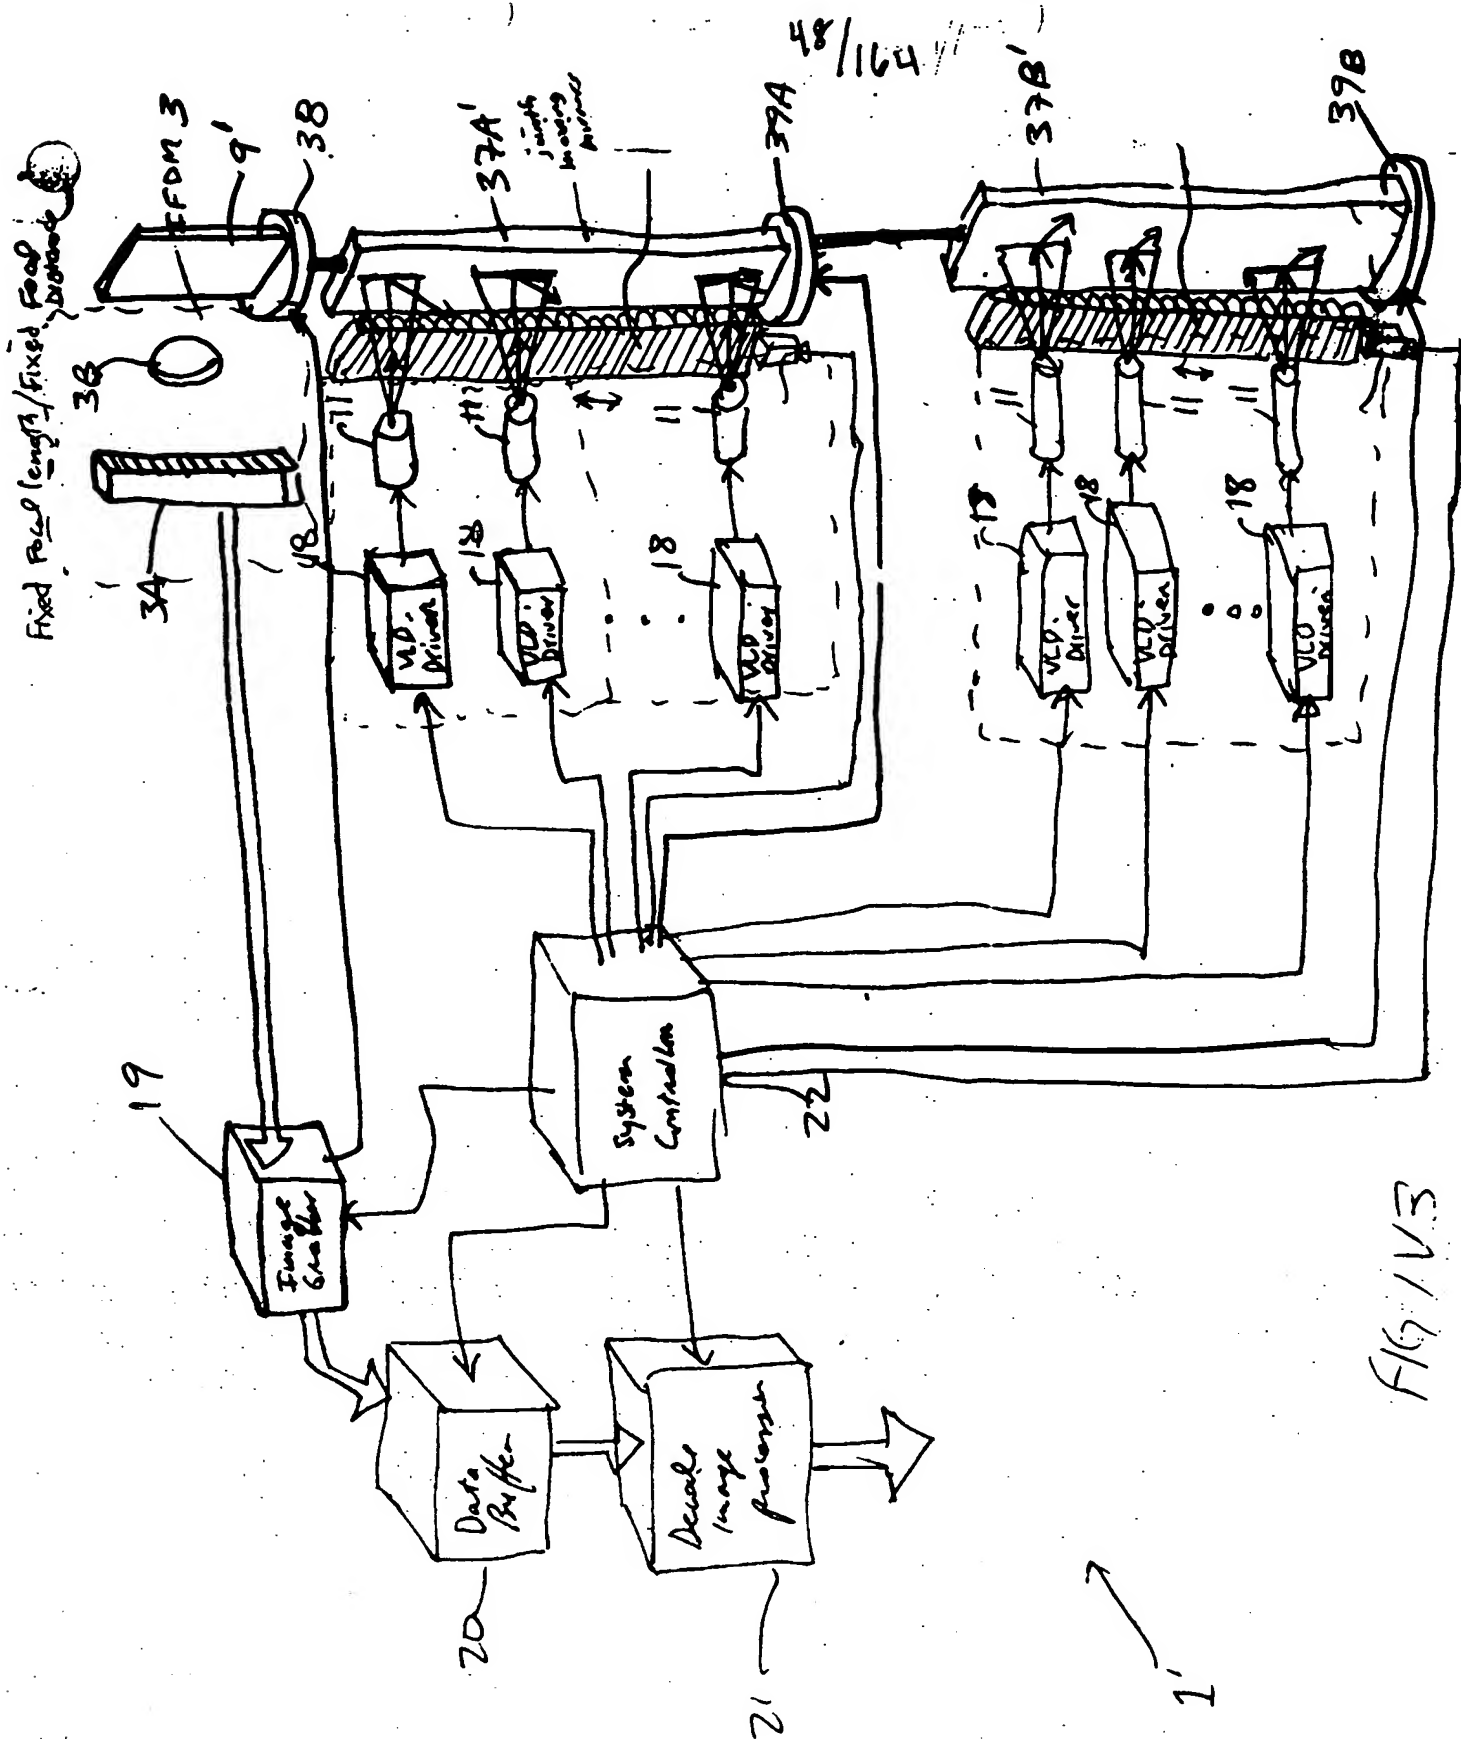 48/164
Fixed Focal length/Fixed Focal
Distance
IFDM 3
9'
38
3B
3A
37A'
jointly
moving
mirrors
39A
37B'
39B
11
11
11
11
11
11
18
18
18
18
18
18
VLD
Driver
VLD
Driver
VLD
Driver
VLD
Driver
VLD
Driver
VLD
Driver
19
Image
Grabber
System
Controller
22
Data
Buffer
20
Decode
Image
processor
21
1'
FIG 1V3